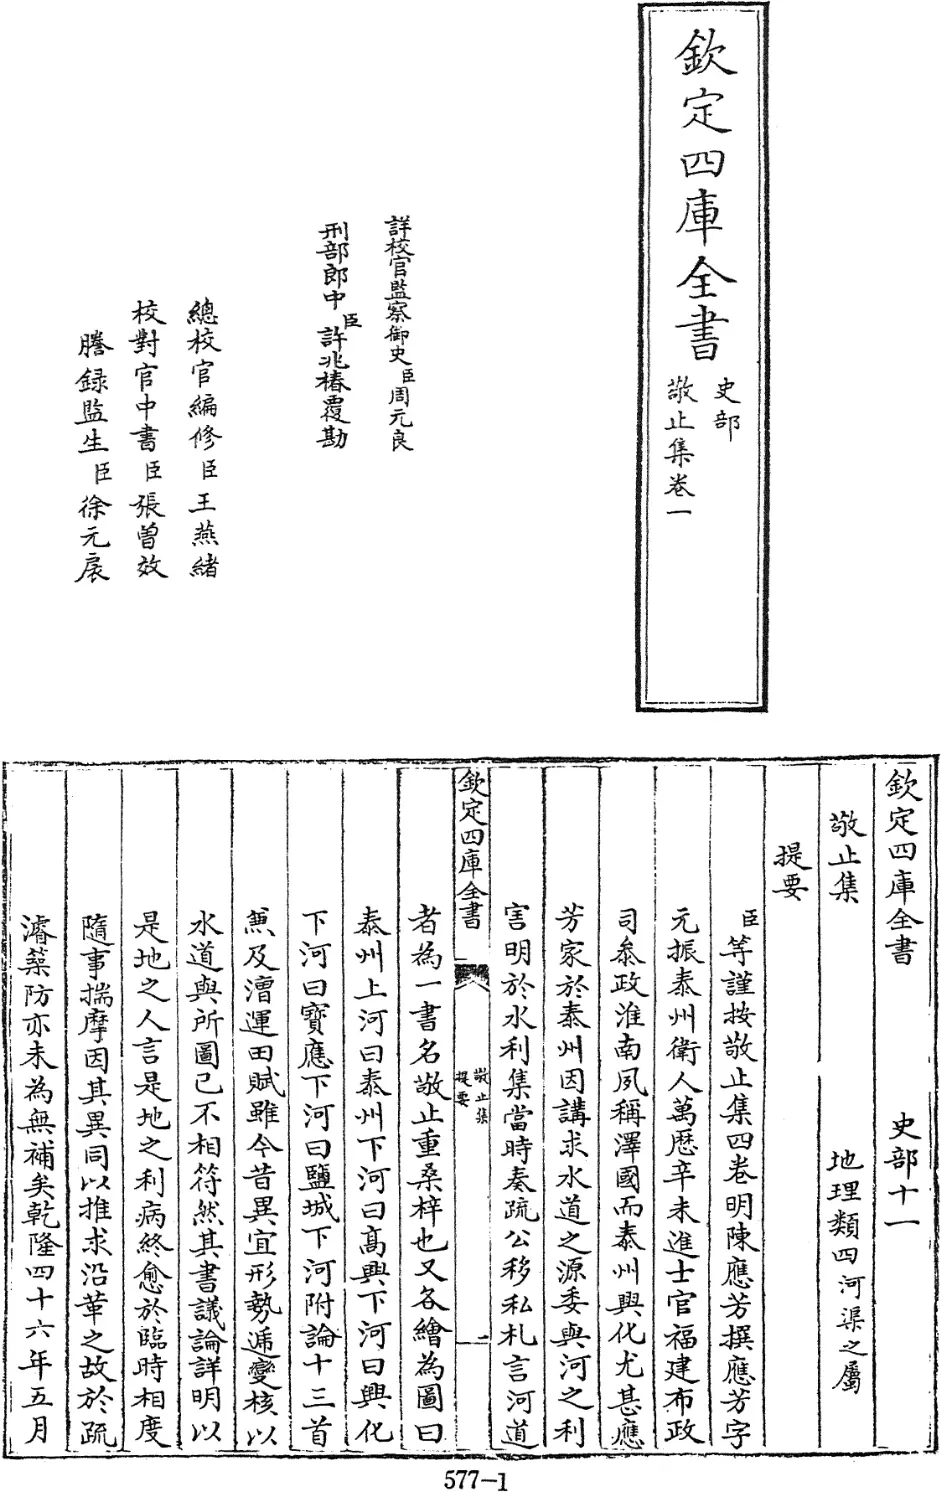 欽定四庫全書
史部
敬止集卷一
詳校官監察御史臣周元良
刑部郎中臣許兆椿覆勘
總校官編修臣王燕緒
校對官中書臣張曾效
謄録監生臣徐元扆
欽定四庫全書 史部十一
敬止集 地理類四河渠之屬
提要
臣等謹按敬止集四卷明陳應芳撰應芳字
元振泰州衛人萬厯辛未進士官福建布政
司叅政淮南夙稱澤國而泰州興化尤甚應
芳家於泰州因講求水道之源委與河之利
害明於水利集當時奏疏公移私札言河道
欽定四庫全書 敬止集 提要 一
者為一書名敬止重桑梓也又各繪為圖曰
泰州上河曰泰州下河曰高興下河曰興化
下河曰寳應下河曰鹽城下河附論十三首
兼及漕運田賦雖今昔異宜形勢遞變核以
水道與所圖已不相符然其書議論詳明以
是地之人言是地之利病終愈於臨時相度
隨事揣摩因其異同以推求沿革之故於疏
濬築防亦未為無補矣乾隆四十六年五月
577-1